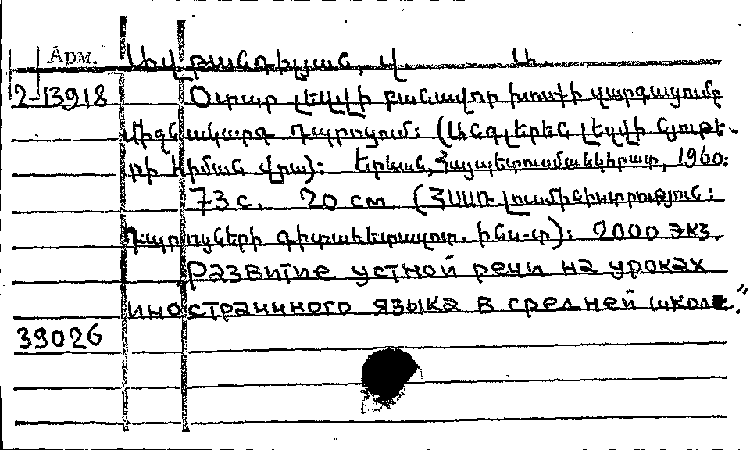 Арм.
2-13918
Օտար լեզվի բանավոր խոսքի զարգացումը
միջնակարգ դպրոցում: (Անգլերեն լեզվի նյութե-
րի հիման վրա): Երևան, Հայպետուսմանկհրատ, 1960:
73 с. 20 см (ՀՍՍՌ լուսմինիստրություն:
Դպրոցների գիտահետազոտ. ինս-տ): 2000 экз.
Развитие устной речи на уроках
иностранного языка в средней школе."
39026